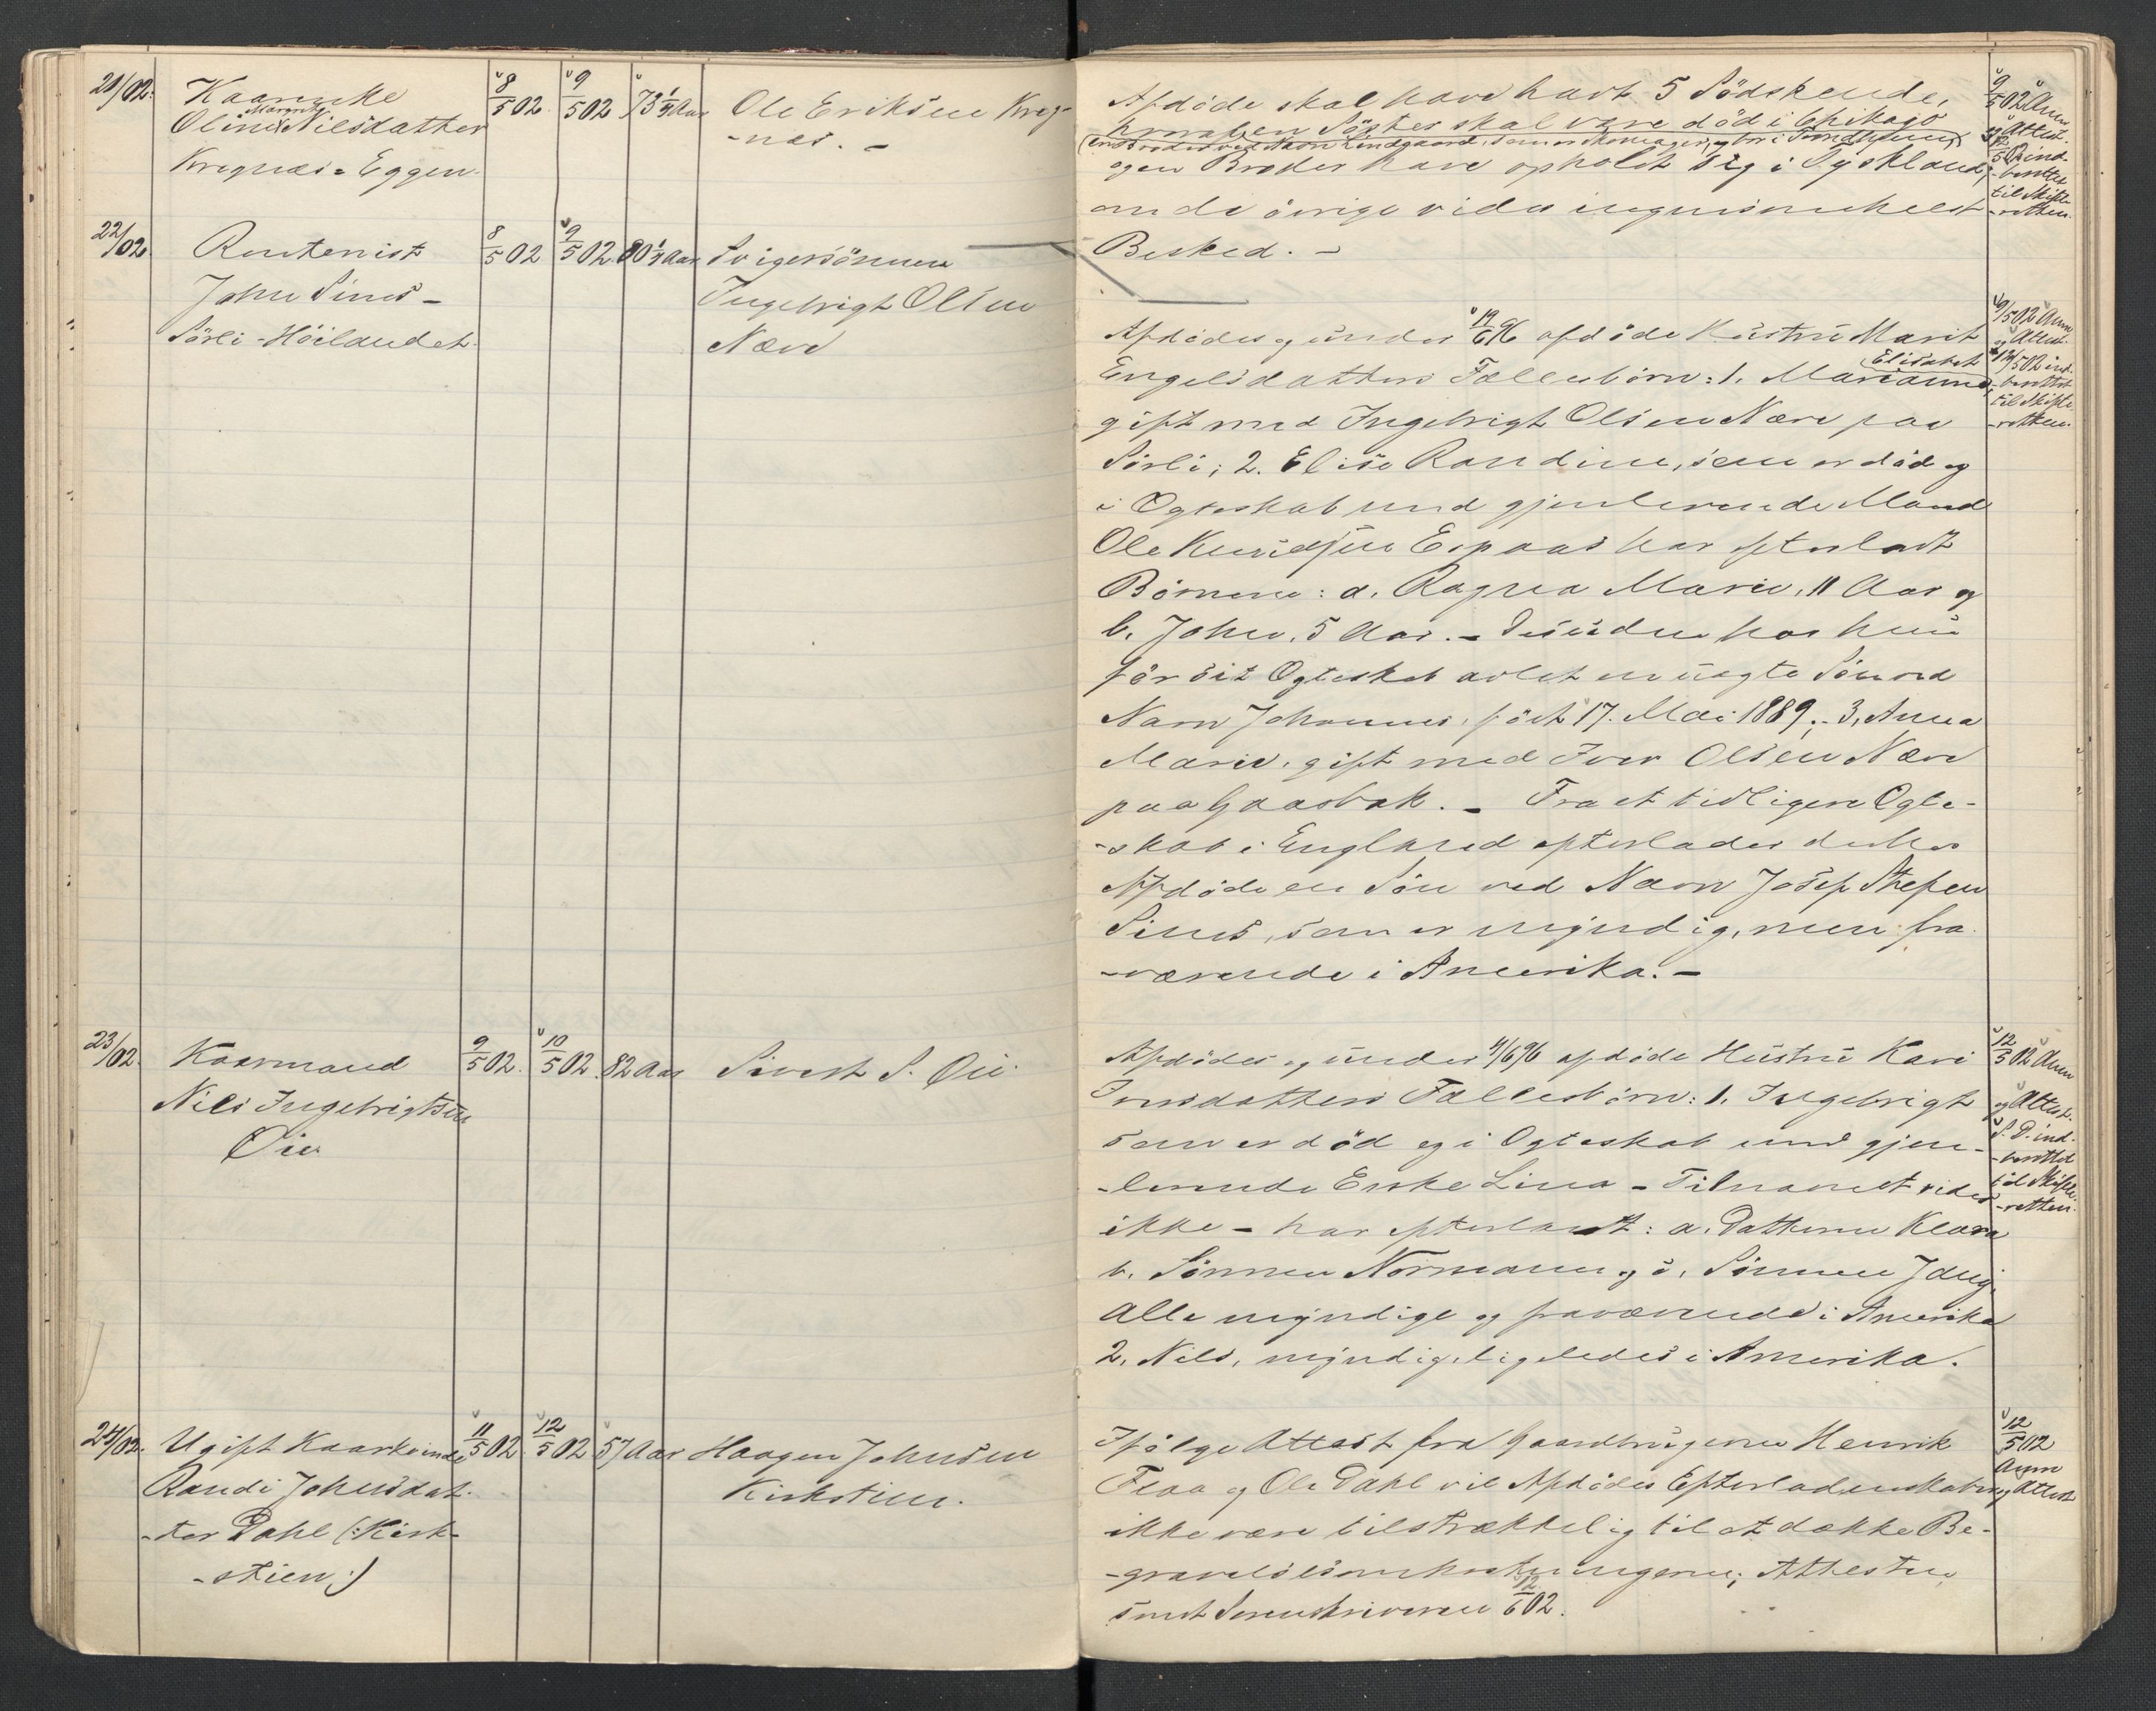 21/02.
Kaarenke
Marente
Oline Nilsdatter
Kregnæs-Eggen.
8/5 02.
9/5 02
73 1/4 Aar
Ole Eriksen Kreg-
-næs. -
Afdøde skal have havt 5 Södskende,
hvoraf en Söster skal være död i Chikago
(en Broder ved Navn Lindgaard, som er Skomager, bor i Trondhjem)
og en Broder have opholdt sig i Tyskland;
om de övrige vides ingensomhelst
Besked. -
9/5 02 Anm
og Attest.
5 02 ind-
-berettet
til Skifte-
-retten.
22/02.
Rentenist
John Sines-
Sörli-Höilandet.
8/5 02
9/5 02.
80 1/4 Aar
Svigersönnen
Ingebrigt Olsen
Næve
Afdödes og under 19/6 96 afdöde Hustru Marit
Engelsdatters Fællesbörn: 1. Marianne
Elisabet
gift med Ingebrigt Olsen Næve paa
Sörli; 2. Elise Randine, som er död og
i Ægteskab med gjenlevende Mand
Ole Knudsen Espaas har efterladt
Börnene: a. Ragna Marie, 11 Aar og
b. John, 5 Aar. - Desuden har hun
för sit Ægteskab avlet en uægte Sön ved
Navn Johannes, född 17. Mai 1889; - 3, Anna
Marie, gift med Iver Olsen Næve
paa Gaasbak. - Fra et tidligere Ægte-
-skab i England efterlader derhos
Afdöde en Sön ved Navn Josef Stefen
Sines, som er myndig, men fra-
-værende i Amerika. -
9/5 02 Anm
og Attest.
12/5 02 ind-
-berettet
til Skifte-
-retten.
23/02.
Kaarmand
Nils Ingebrigtsen
Öie
9/5 02.
10/5 02.
82 Aar
Sivert S. Öie.
Afdödes og under 4/6 96 afdöde Hustru Kari
Jonsdatters Fællesbörn: 1. Ingebrigt
som er död og i Ægteskab med gjen-
-levende Enke Lina - Tilnavnet vides
ikke - har efterladt: a. Datteren Klara
b. Sönnen Normann og c. Sönnen
Alle myndige og fraværende i Amerika
2. Nils, myndig, ligeledes i Amerika.
12/5 02 Anm
og Attest.
S. D. ind-
-berettet
til Skifte-
-retten.
24/02.
Ugift Kaarkvinde
Randi Johnsdat-
-ter Dahl (:Kirk-
-stien:)
11/5 02.
12/5 02
57 Aar
Haagen Johnsen
Kirkstien.
Ifölge Attest fra Gaardbrugerne Henrik
Flaa og Ole Dahl vil Afdödes Efterladenskaber
ikke være tilstrækkelig til at dække Be-
-gravelsesomkostningerne; Attesten
sendt Sorenskriveren 12/6 02.
12/5 02
Anm
og Attest